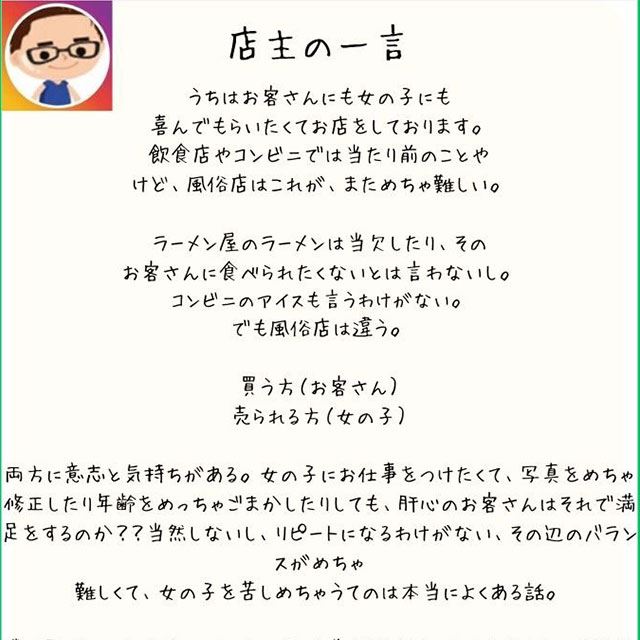 店主の一言
うちはお客さんにも女の子にも
喜んでもらいたくてお店をしております。
飲食店やコンビニでは当たり前のことや
けど、風俗店はこれが、まためちゃ難しい。
ラーメン屋のラーメンは当欠したり、その
お客さんに食べられたくないとは言わないし。
コンビニのアイスも言うわけがない。
でも風俗店は違う。
買う方(お客さん)
売られる方(女の子)
両方に意志と気持ちがある。女の子にお仕事をつけたくて、写真をめちゃ
修正したり年齢をめっちゃごまかしたりしても、肝心のお客さんはそれで満
足をするのか??当然しないし、リピートになるわけがない、その辺のバラン
スがめちゃ
難しくて、女の子を苦しめちゃうてのは本当によくある話。